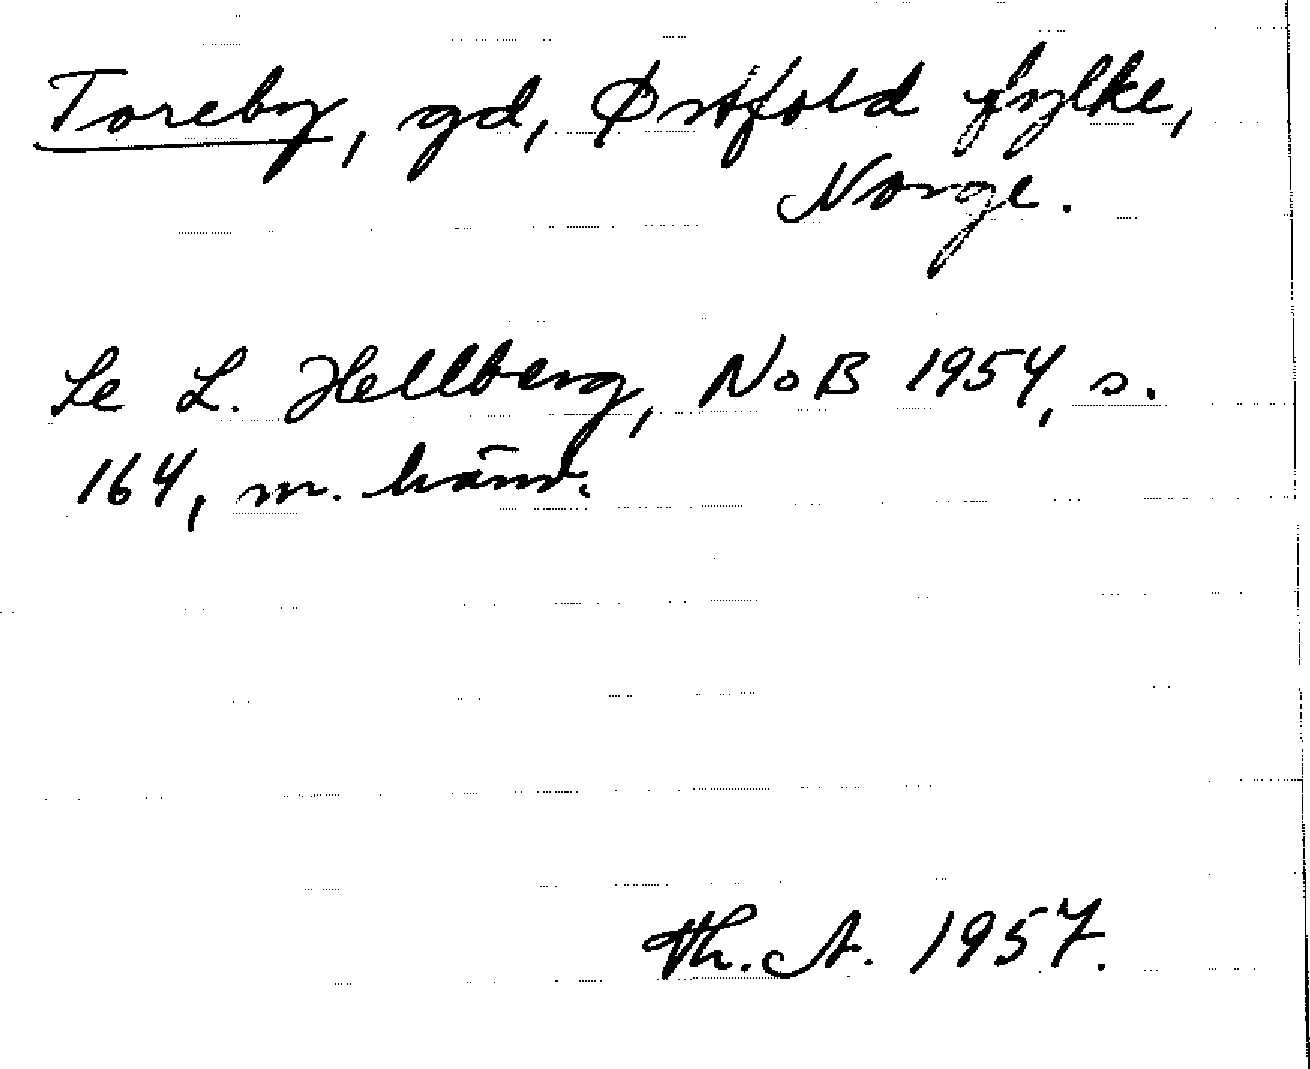 Toreby, gd, Østfold fylke,
Norge.
Se L. Hellberg, NoB 1954, s.
164, m. hänv.
Th. A. 1957.